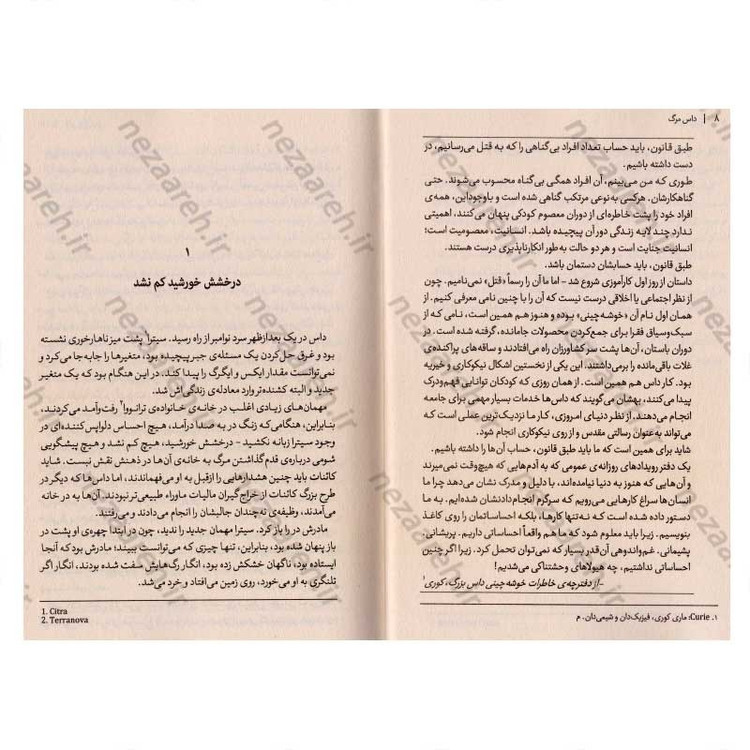 ۸ | داس مرگ
طبق قانون، باید حساب تعداد افراد بی‌گناهی را که به قتل می‌رسانیم، در
دست داشته باشیم.
طوری که من می‌بینم، آن افراد همگی بی‌گناه محسوب می‌شوند. حتی
گناهکارشان. هرکسی به‌نوعی مرتکب گناهی شده است و باوجوداین، همه‌ی
افراد خود را پشت خاطره‌ای از دوران معصوم کودکی پنهان می‌کنند، اهمیتی
ندارد چند لایه زندگی دور آن پیچیده باشد. انسانیت، معصومیت است؛
انسانیت جنایت است و هر دو حالت به‌طور انکارناپذیری درست هستند.
طبق قانون، باید حسابشان دستمان باشد.
داستان از روز اول کارآموزی شروع شد – اما ما آن را رسماً «قتل» نمی‌نامیم. چون
از نظر اجتماعی یا اخلاقی درست نیست که آن را با چنین نامی معرفی کنیم. از
همان اول نام آن «خوشه‌چینی» بوده و هنوز هم همین است، نامی که از
سبک‌وسیاق فقرا برای جمع‌کردن محصولات جامانده، گرفته شده است. در
دوران باستان، آن‌ها پشت سر کشاورزان راه می‌افتادند و ساقه‌های پراکنده‌ی
غلات باقی‌مانده را برمی‌داشتند. این یکی از نخستین اشکال نیکوکاری و خیریه
بود. کار داس هم همین است. از همان روزی که کودکان توانایی فهم‌ودرک
پیدا می‌کنند، بهشان می‌گویند که داس‌ها خدمات بسیار مهمی برای جامعه
انجام می‌دهند. از نظر دنیای امروزی، کار ما نزدیک‌ترین عملی است که
می‌تواند به‌عنوان رسالتی مقدس و از روی نیکوکاری انجام شود.
شاید برای همین است که ما باید طبق قانون، حساب آن‌ها را داشته باشیم.
یک دفتر رویدادهای روزانه‌ی عمومی که به آدم‌هایی که هیچ‌وقت نمی‌میرند
و آن‌هایی که هنوز به دنیا نیامده‌اند، با دلیل و مدرک نشان می‌دهد چرا ما
انسان‌ها سراغ کارهایی می‌رویم که سرگرم انجام‌دادنشان شده‌ایم. به ما
دستور داده شده است که نه‌تنها کارها، بلکه احساساتمان را روی کاغذ
بنویسیم. زیرا باید معلوم شود که ما هم واقعاً احساساتی داریم. پریشانی.
پشیمانی. غم‌واندوهی آن‌قدر بسیار که نمی‌توان تحمل کرد. زیرا اگر چنین
احساساتی نداشتیم، چه هیولاهای وحشتناکی می‌شدیم!
–از دفترچه‌ی خاطرات خوشه‌چینی داس بزرگ، کوری۱
۱. Curie: ماری کوری، فیزیک‌دان و شیمی‌دان. م
۱
درخشش خورشید کم نشد
داس در یک بعدازظهر سرد نوامبر از راه رسید. سیترا۱ پشت میز ناهارخوری نشسته
بود و غرق حل‌کردن یک مسئله‌ی جبر پیچیده بود، متغیرها را جابه‌جا می‌کرد و
نمی‌توانست مقدار ایکس و ایگرگ را پیدا کند. در این هنگام بود که یک متغیر
جدید و البته کشنده‌تر وارد معادله‌ی زندگی‌اش شد.
مهمان‌های زیادی اغلب در خانه‌ی خانواده‌ی ترانووا۲ رفت‌وآمد می‌کردند،
بنابراین، هنگامی‌که زنگ در به صدا درآمد، هیچ احساس دلواپس‌کننده‌ای در
وجود سیترا زبانه نکشید – درخشش خورشید، هیچ کم نشد و هیچ پیشگویی
شومی درباره‌ی قدم‌گذاشتن مرگ به خانه‌ی آن‌ها در ذهنش نقش نبست. شاید
کائنات باید چنین هشدارهایی را ازقبل به او می‌فهماندند، اما داس‌ها که دیگر در
طرح بزرگ کائنات از خراج‌گیران مالیات ماوراء طبیعی‌تر نبودند. آن‌ها به در خانه
می‌آمدند، وظیفه‌ی نه‌چندان جالبشان را انجام می‌دادند و می‌رفتند.
مادرش در را باز کرد. سیترا مهمان جدید را ندید، چون در ابتدا چهره‌ی او پشت در
باز پنهان شده بود، بنابراین، تنها چیزی که می‌توانست ببیند؛ مادرش بود که آنجا
ایستاده بود، ناگهان خشکش زده بود، انگار رگ‌هایش سفت شده بودند، انگار اگر
تلنگری به او می‌خورد، روی زمین می‌افتاد و خرد می‌شد.
1. Citra
2. Terranova
nezaareh.ir